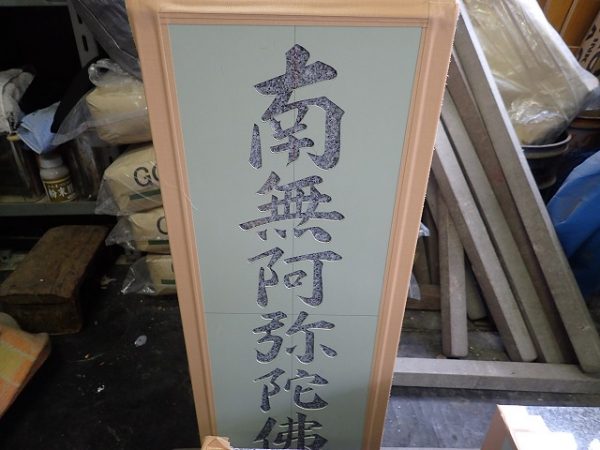 南無阿弥陀佛
GC